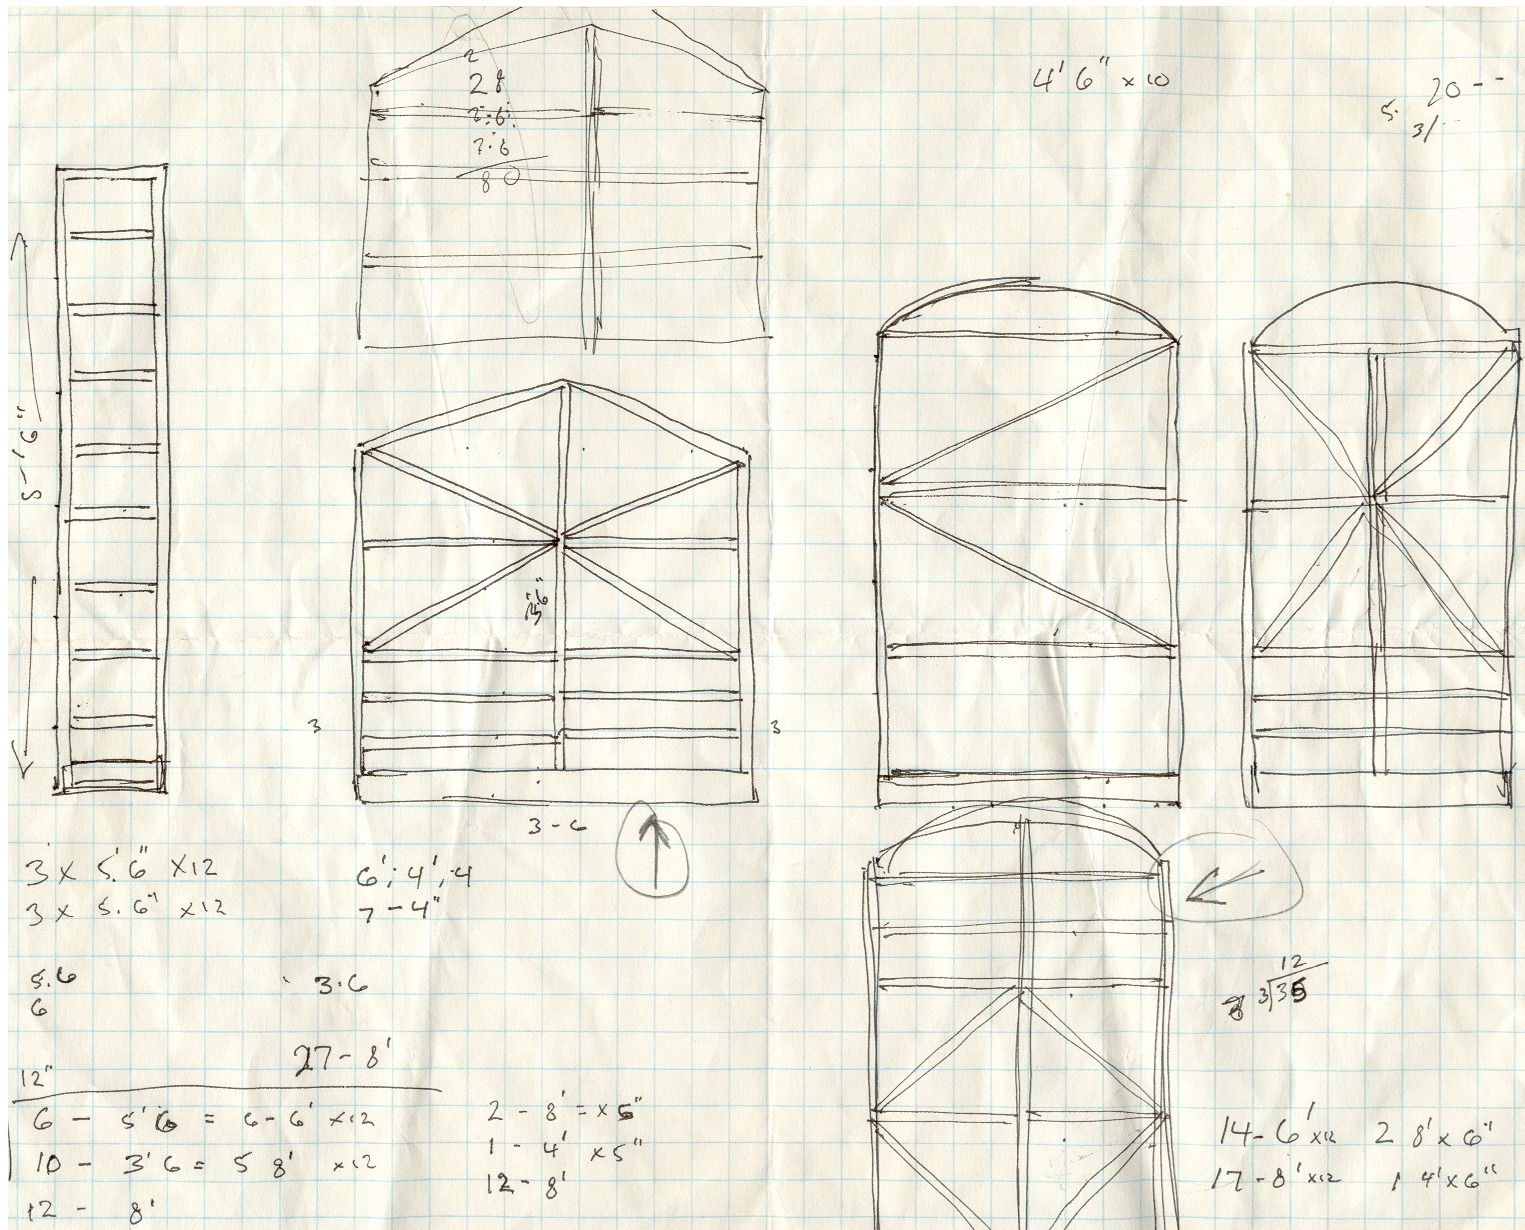 2
28
2:6:
7.6
80
4' 6" x 10
20 - -
5.
3/
5-'6"
3
3
3 - 6
3 x 5.'6" x12
3 x 5.6" x12
6'; 4'; 4
7 - 4"
5.6
6
3.6
12
3|36
27 - 8'
12"
6 - 5'6 = 6 - 6' x12
10 - 3'6 = 5 8' x12
12 - 8'
2 - 8' = x 6"
1 - 4' x5"
12 - 8'
14 - 6' x12 2 8' x 6"
17 - 8' x12 1 4' x 6"